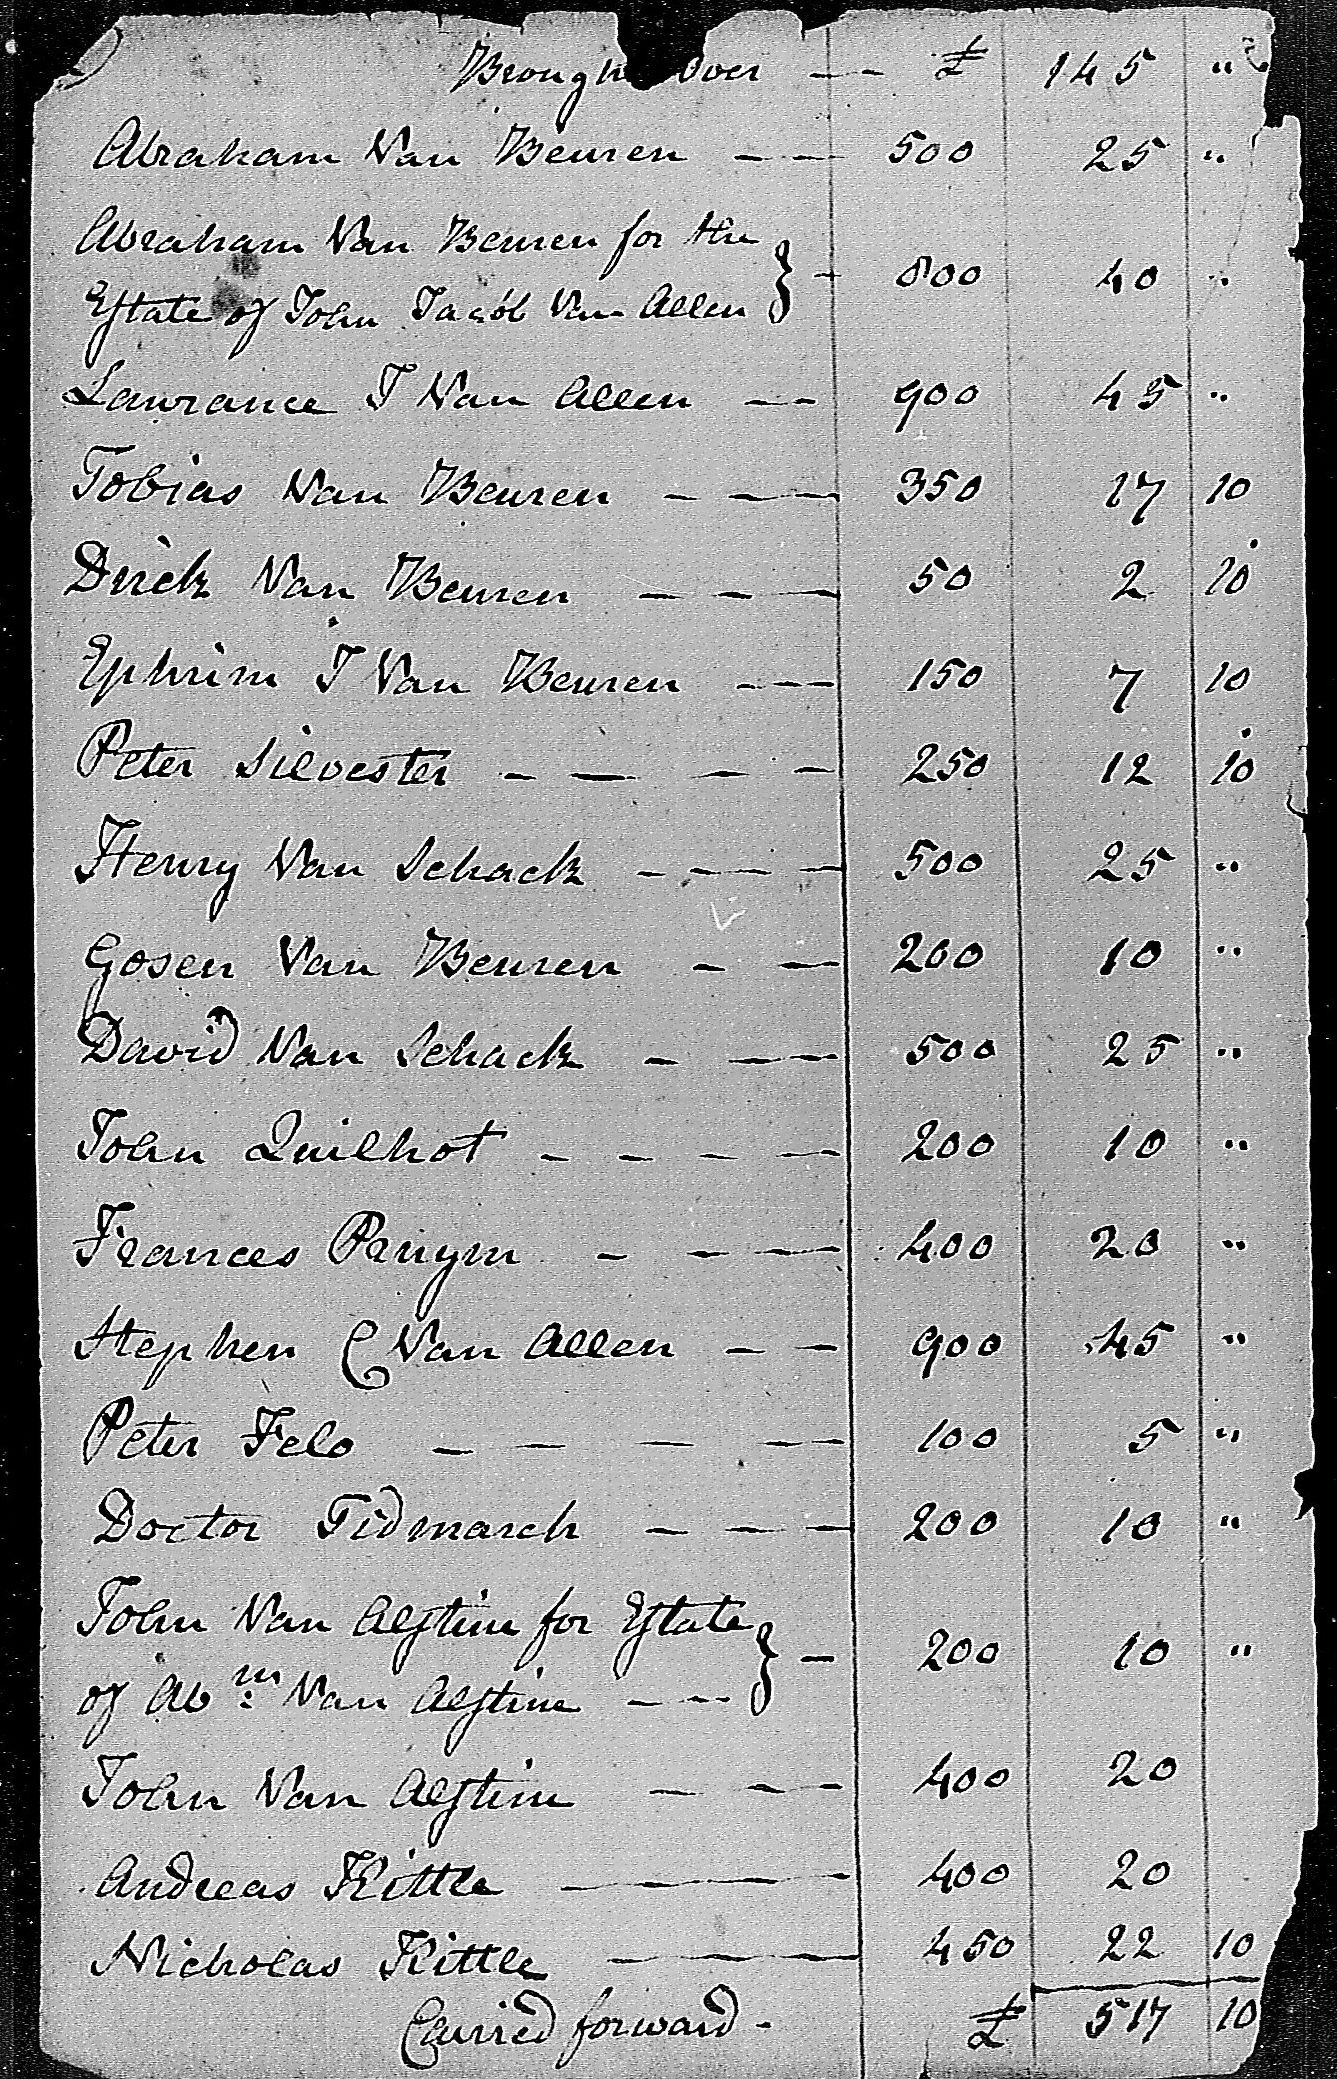 Brough over — — £ 145 "
Abraham Van Beuren — — 500 25 "
Abraham Van Beuren for the
Estate of John Jacob Van Allen } - 800 40 "
Lawrance J Van Allen — — 900 45 "
Tobias Van Beuren — — — 350 17 10
Dirck Van Beuren — — — 50 2 10
Ephrim J Van Beuren — — — 150 7 10
Peter Silvester — — — — 250 12 10
Henry Van Schack — — — — 500 25 "
Gosen Van Beuren — — 200 10 "
David Van Schack — — — 500 25 "
John Quilhot — — — — 200 10 "
Frances Pruym — — — 400 20 "
Stephen C Van Allen — — 900 45 "
Peter Felo — — — — 100 5 "
Doctor Tidmarch — — — 200 10 "
John Van Alstine for Estate
of Abm Van Alstine — — } — 200 10 "
John Van Alstine — — — 400 20
Andreas Kittle — — — 400 20
Nicholas Kittle — — — 450 22 10
Carried forward - £ 517 10